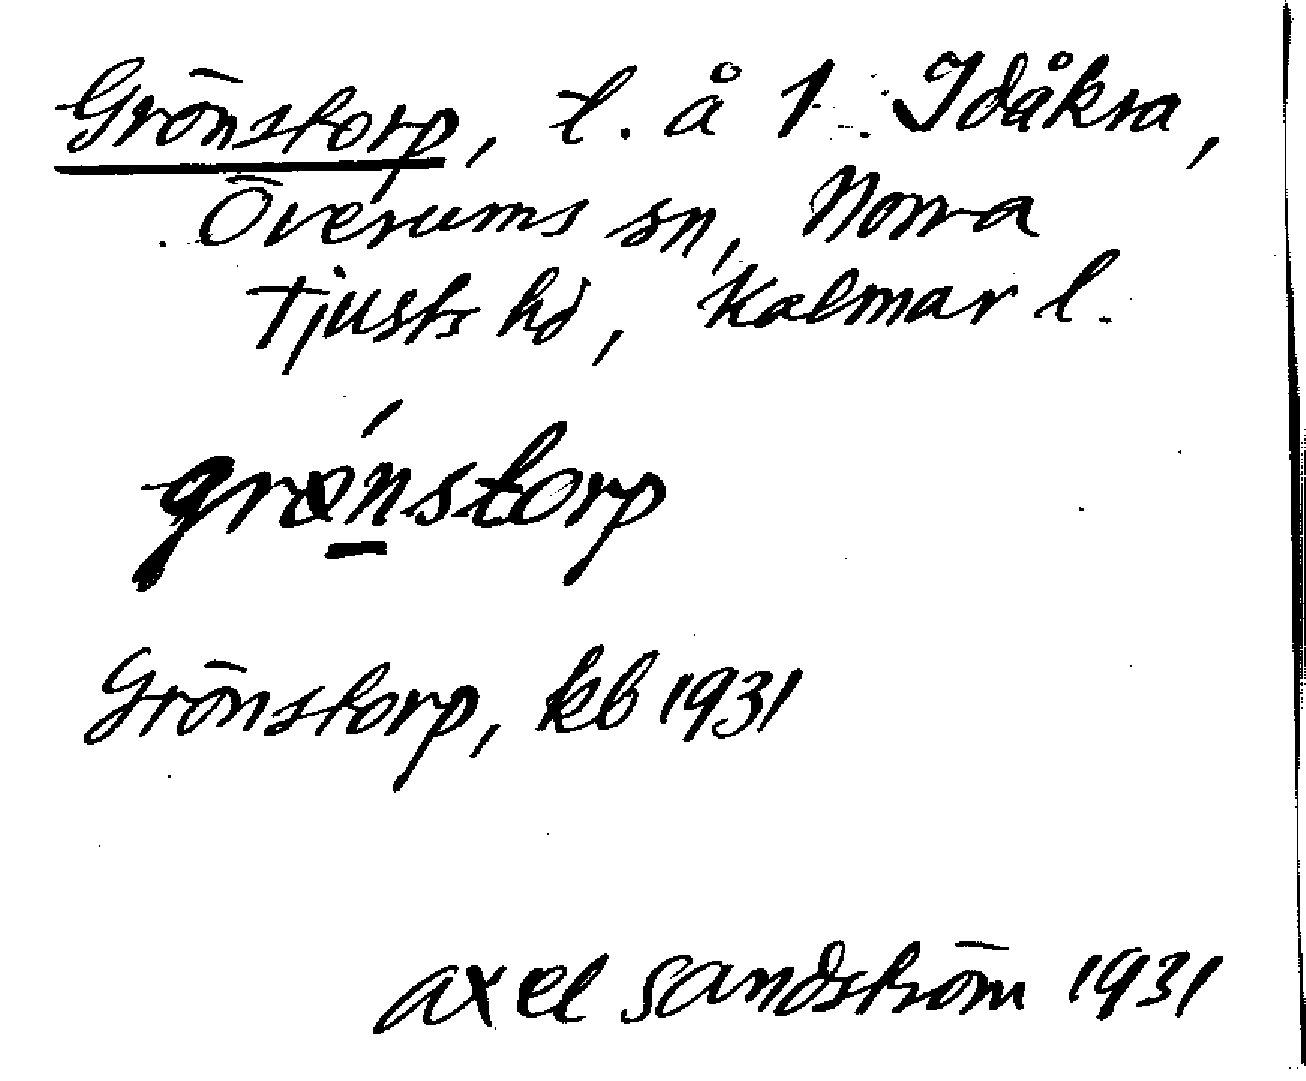 Grönstorp, t. å 1 Idåkra,
Överums sn, Norra
Tjusts hd, Kalmar l.
grǿnstorp
Grönstorp, kb 1931
Axel Sandström 1931